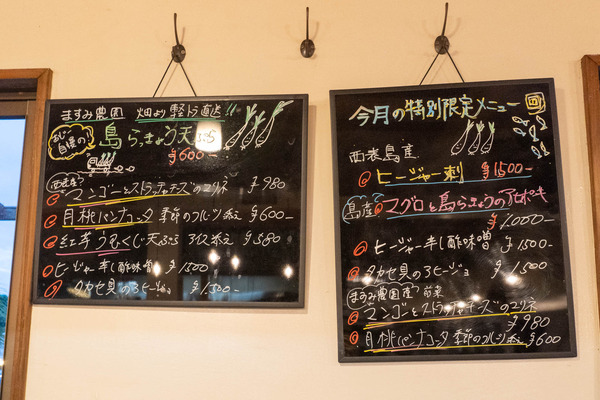 ますみ農園 畑より軽トラ直送!!
自慢の 島らっきょう天ぷら
¥600-
西表産
マンゴーとストラッチャテーズのマリネ ¥980
月桃パンナコッタ 季節のフルーツ添え ¥600-
紅芋うむくじ天ぷら アイス添え ¥580
ヒージャー刺し酢味噌 ¥1500-
タカセ貝のアヒージョ ¥1,500-
今月の特別限定メニュー
西表島産
ヒージャー刺 ¥1500-
島産 マグロと島らっきょうのアヒポキ
¥1,000-
ヒージャー刺し酢味噌 ¥1500-
タカセ貝のアヒージョ ¥1500-
ますみ農園産 前菜
マンゴーとストラッチャテーズのマリネ
¥980
月桃パンナコッタ 季節のフルーツ添え ¥600